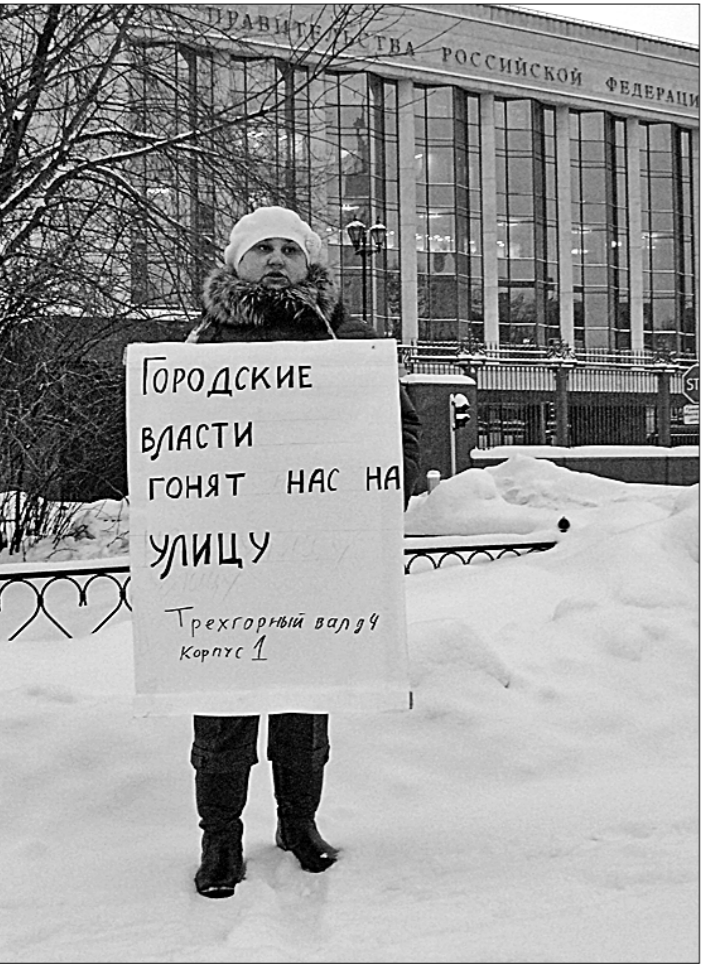 ПРАВИТЕЛЬСТВА РОССИЙСКОЙ ФЕДЕРАЦИ
ST
Городские
власти
гонят нас на
улицу
Трехгорный вал д 4
корпус 1